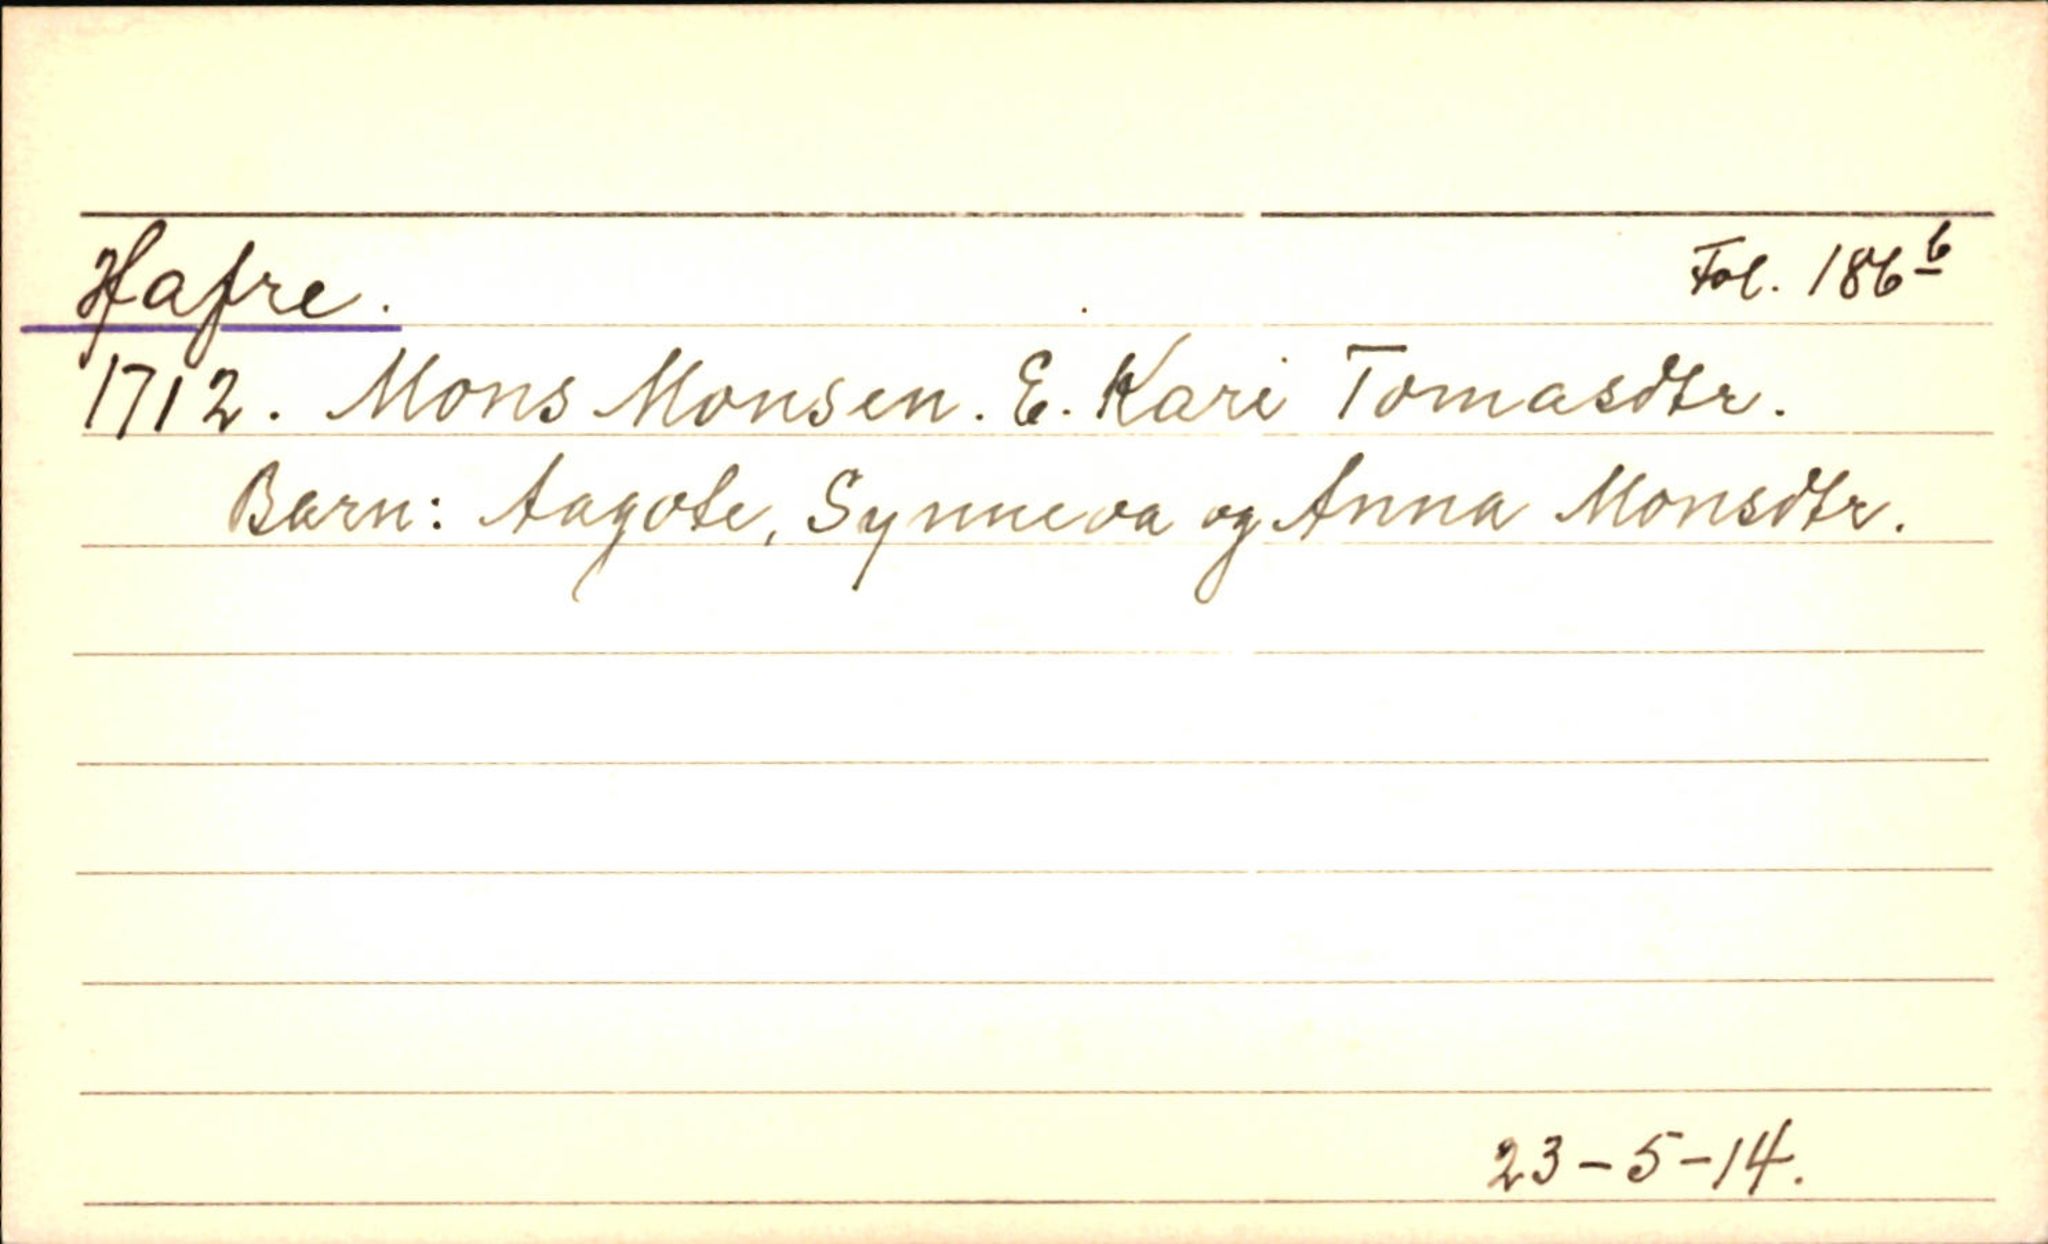 Hafre. Fol. 186b
1712. Mons Monsen. E. Kari Tomasdtr.
Barn: Aagote, Synneva og Anna Monsdtr.
23-5-14.